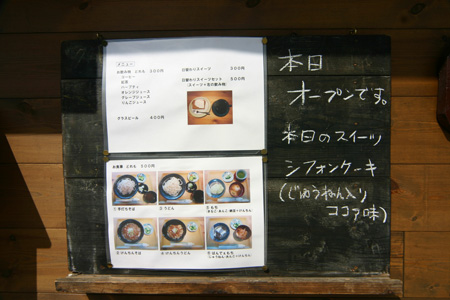 メニュー
お飲み物 どれも 300円
コーヒー
紅茶
ハーブティ
オレンジジュース
グレープジュース
りんごジュース
グラスビール 400円
日替わりスイーツ 300円
日替わりスイーツセット 500円
スイーツ+右の飲み物
お食事 どれも 500円
② うどん
本日
オープンです。
本日のスイーツ
シフォンケーキ
(じゅうねん入り
ココア味)